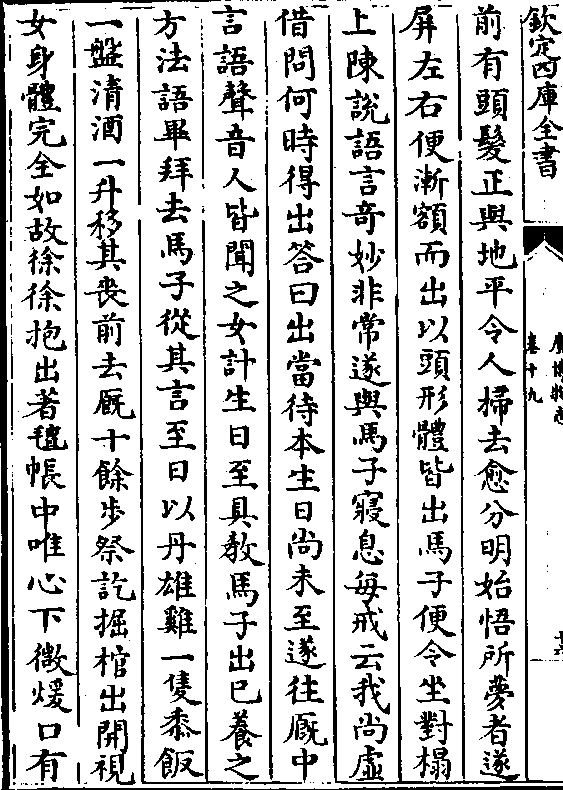 欽定四庫全書
廣博物志
卷十九
前有頭髮正與地平令人掃去愈分明始悟所夢者遂
屏左右便漸額而出以頭形體皆出馬子便令坐對榻
上陳說語言奇妙非常遂與馬子寢息每戒云我尚虛
借問何時得出答曰出當待本生日尚未至遂往厩中
言語聲音人皆聞之女計生日至具教馬子出已養之
方法語畢拜去馬子從其言至日以丹雄雞一隻黍飯
一盤清酒一升移其喪前去厩十餘步祭訖掘棺出開視
女身體完全如故徐徐抱出著氊帳中唯心下微煖口有